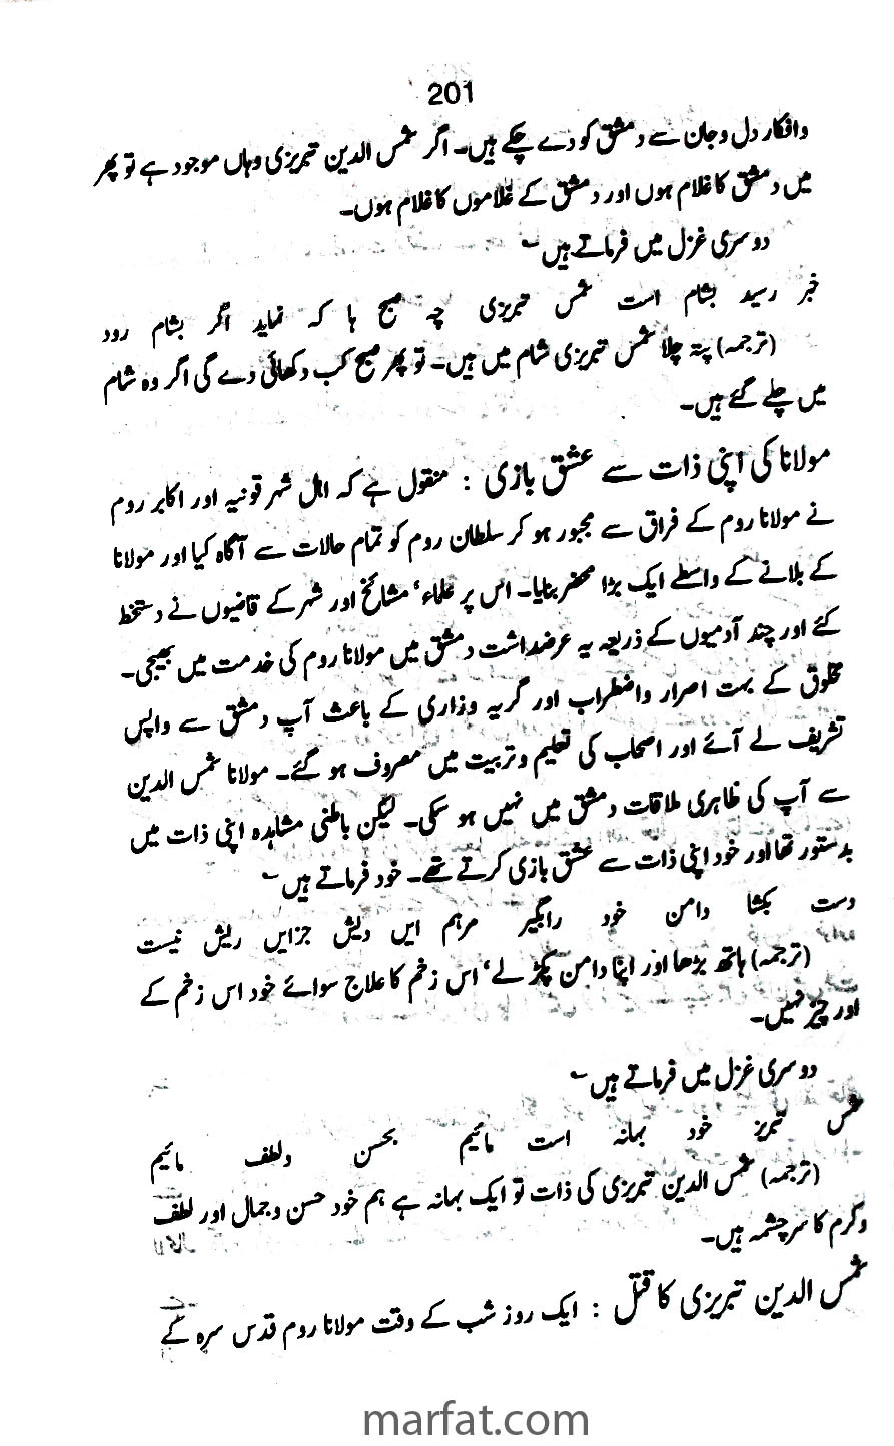 201
وافکار دل و جان سے دمشق کو دے چکے ہیں۔ اگر شمس الدین تبریزی وہاں موجود ہے تو پھر
میں دمشق کا غلام ہوں اور دمشق کے غلاموں کا غلام ہوں۔
دوسری غزل میں فرماتے ہیں ؎
خبر رسید بشام است شمس تبریزی چہ صبح ہا کہ نماید اگر بشام رود
(ترجمہ) پتہ چلا شمس تبریزی شام میں ہیں۔ تو پھر صبح کب دکھائی دے گی اگر وہ شام
میں چلے گئے ہیں۔
مولانا کی اپنی ذات سے عشق بازی : منقول ہے کہ اہل شہر قونیہ اور اکابر روم
نے مولانا روم کے فراق سے مجبور ہو کر سلطان روم کو تمام حالات سے آگاہ کیا اور مولانا
کے بلانے کے واسطے ایک بڑا محضر بنایا۔ اس پر علماء' مشائخ اور شہر کے قاضیوں نے دستخط
کئے اور چند آدمیوں کے ذریعہ یہ عرضداشت دمشق میں مولانا روم کی خدمت میں بھیجی۔
مخلوق کے بہت اصرار واضطراب اور گریہ وزاری کے باعث آپ دمشق سے واپس
تشریف لے آئے اور اصحاب کی تعلیم و تربیت میں مصروف ہو گئے۔ مولانا شمس الدین
سے آپ کی ظاہری ملاقات دمشق میں نہیں ہو سکی۔ لیکن باطنی مشاہدہ اپنی ذات میں
بدستور تھا اور خود اپنی ذات سے عشق بازی کرتے تھے۔ خود فرماتے ہیں ؎
دست بکشا دامن خود رابگیر مرہم ایں ریش جزایں ریش نیست
(ترجمہ) ہاتھ بڑھا اور اپنا دامن پکڑ لے' اس زخم کا علاج سوائے خود اس زخم کے
اور چیز نہیں۔
دوسری غزل میں فرماتے ہیں ؎
شمس تبریز خود بہانہ است مائیم بحسن ولطف مائیم
(ترجمہ) شمس الدین تبریزی کی ذات تو ایک بہانہ ہے ہم خود حسن و جمال اور لطف
وکرم کا سرچشمہ ہیں۔
شمس الدین تبریزی کا قتل : ایک روز شب کے وقت مولانا روم قدس سرہ کے
marfat.com